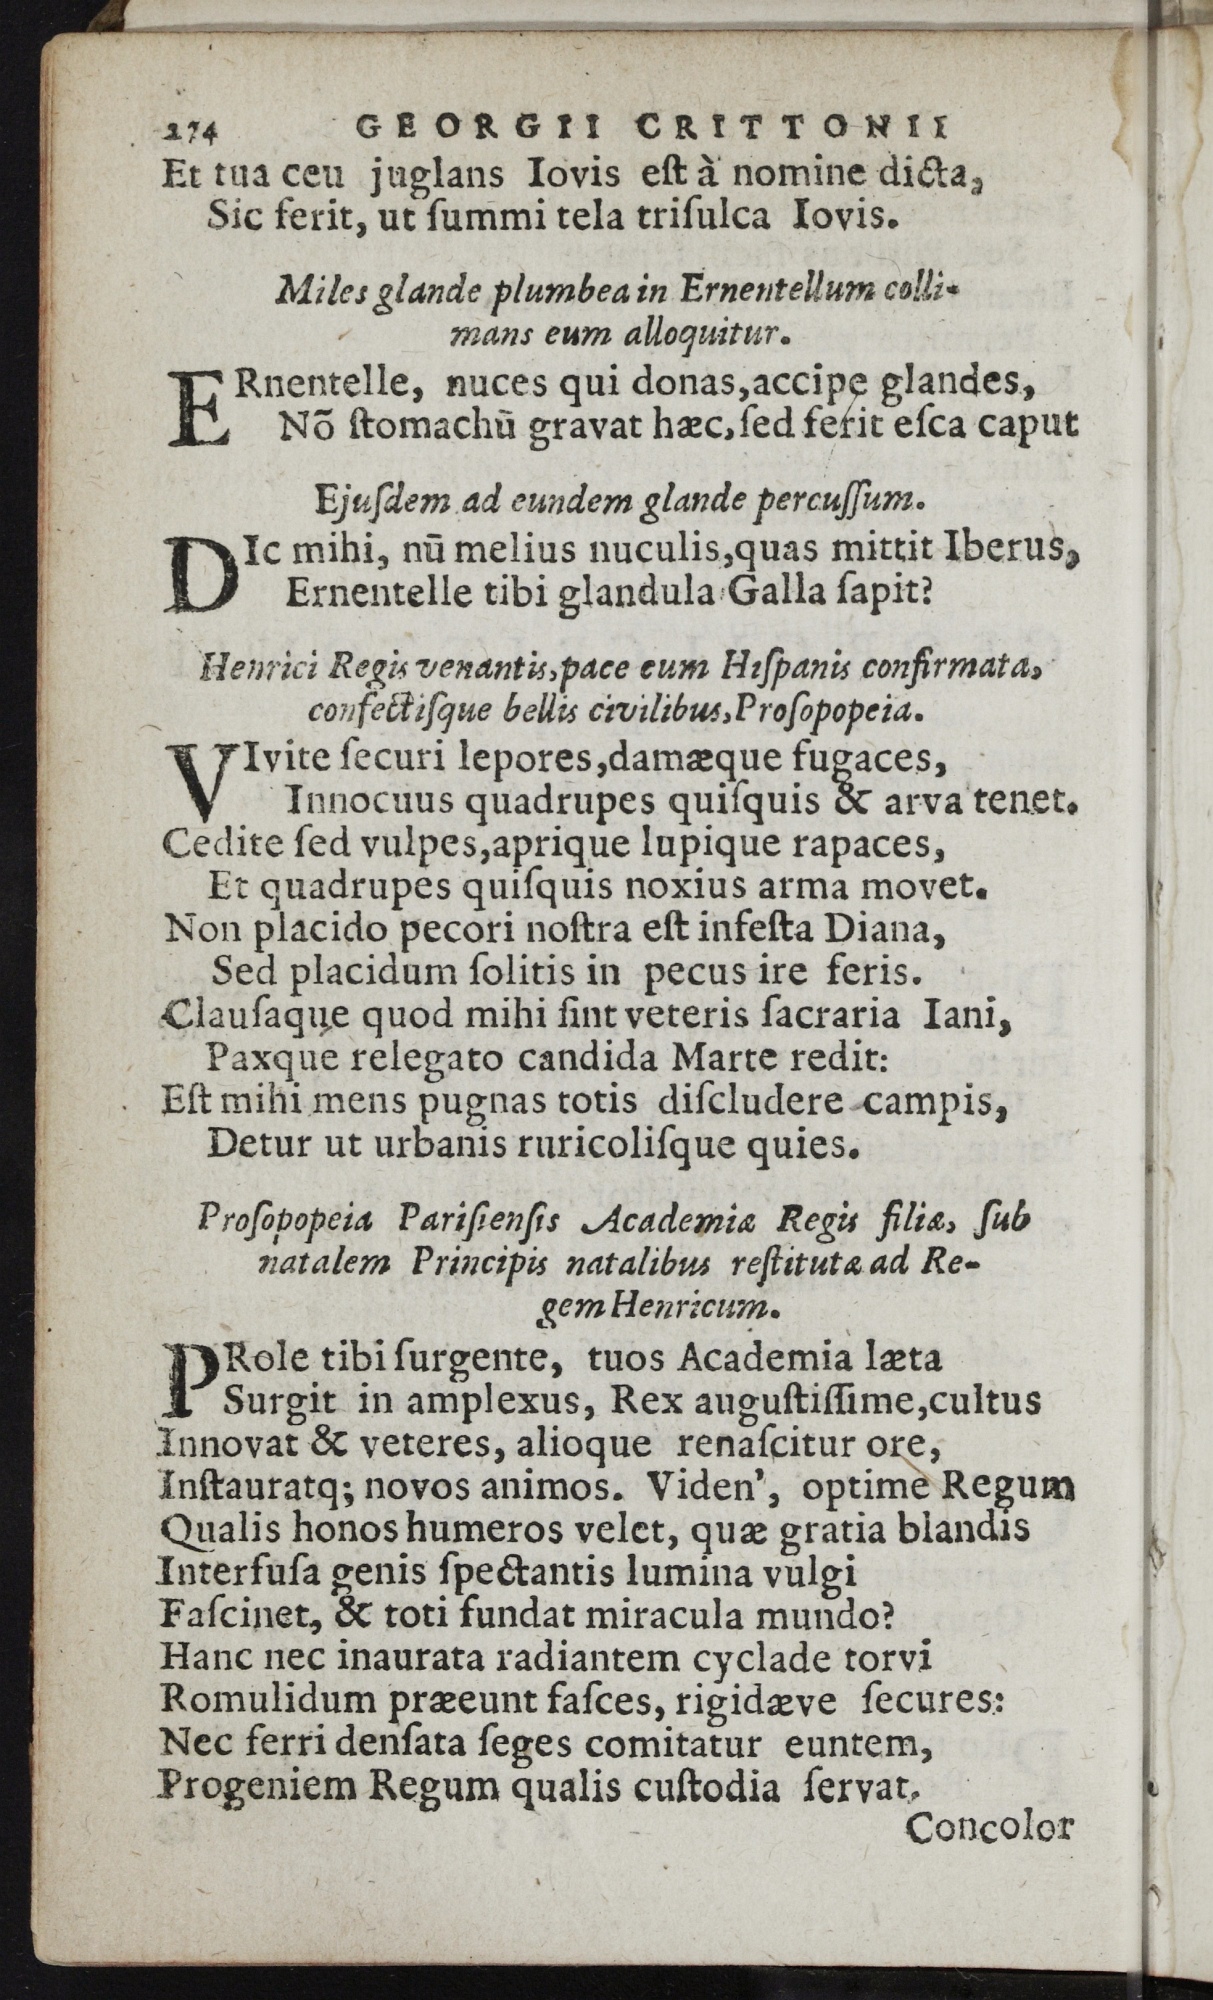 274 GEORGII CRITTONII
Et tua ceu juglans Iovis eſt à nomine dicta,
Sic ferit, ut ſummi tela triſulca Iovis.
Miles glande plumbea in Ernentellum colli-
mans eum alloquitur.
ERnentelle, nuces qui donas, accipe glandes,
Nõ ſtomachū gravat hæc, ſed ferit eſca caput
Ejuſdem ad eundem glande percuſſum.
DIc mihi, nū melius nuculis, quas mittit Iberus,
Ernentelle tibi glandula Galla ſapit?
Henrici Regis venantis, pace cum Hiſpanis confirmata,
confectiſque bellis civilibus, Proſopopeia.
VIvite ſecuri lepores, damæque fugaces,
Innocuus quadrupes quiſquis & arva tenet.
Cedite ſed vulpes, aprique lupique rapaces,
Et quadrupes quiſquis noxius arma movet.
Non placido pecori noſtra eſt infeſta Diana,
Sed placidum ſolitis in pecus ire feris.
Clauſaque quod mihi ſint veteris ſacraria Iani,
Paxque relegato candida Marte redit:
Eſt mihi mens pugnas totis diſcludere campis,
Detur ut urbanis ruricoliſque quies.
Proſopopeia Pariſienſis Academiæ Regis filiæ, ſub
natalem Principis natalibus reſtitutæ ad Re-
gem Henricum.
PRole tibi ſurgente, tuos Academia læta
Surgit in amplexus, Rex auguſtiſſime, cultus
Innovat & veteres, alioque renaſcitur ore,
Inſtauratq; novos animos. Viden', optime Regum
Qualis honos humeros velet, quæ gratia blandis
Interfuſa genis ſpectantis lumina vulgi
Faſcinet, & toti fundat miracula mundo?
Hanc nec inaurata radiantem cyclade torvi
Romulidum præeunt faſces, rigidæve ſecures:
Nec ferri denſata ſeges comitatur euntem,
Progeniem Regum qualis cuſtodia ſervat.
Concolor